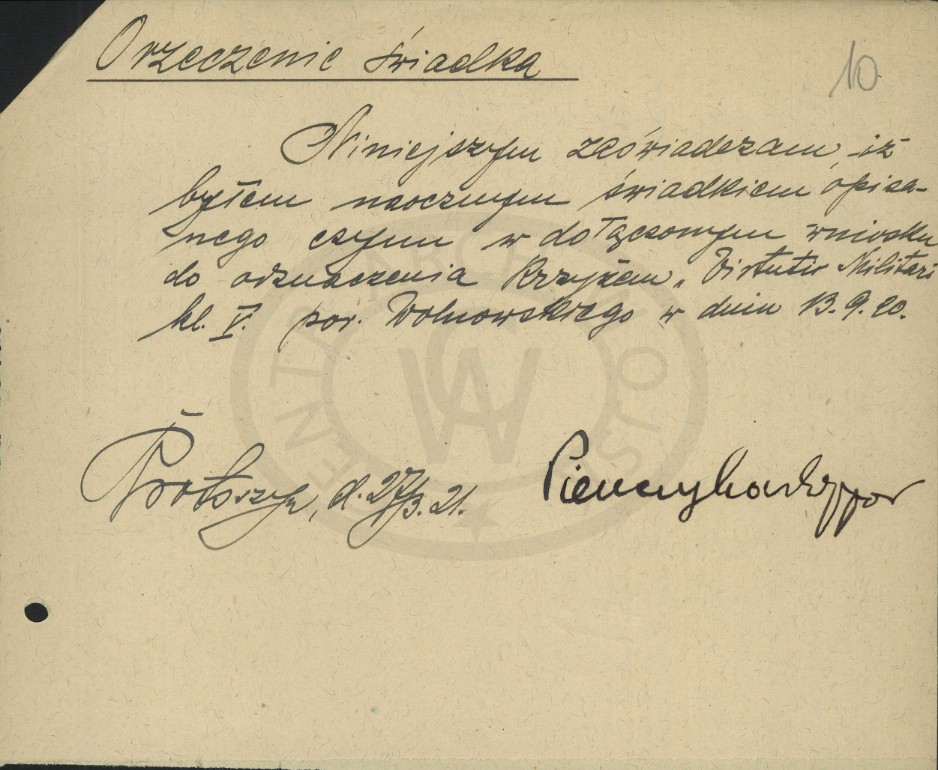 Orzeczenie świadka
10
Niniejszym zaświadczam, iż
byłem naocznym świadkiem opisa-
nego czynu w dołączonym wniosku
do odznaczenia Krzyżem „Virtutis Militari
kl. V. por. Wolnowskiego w dniu 13.9.20.
d. 27/3.21.
por